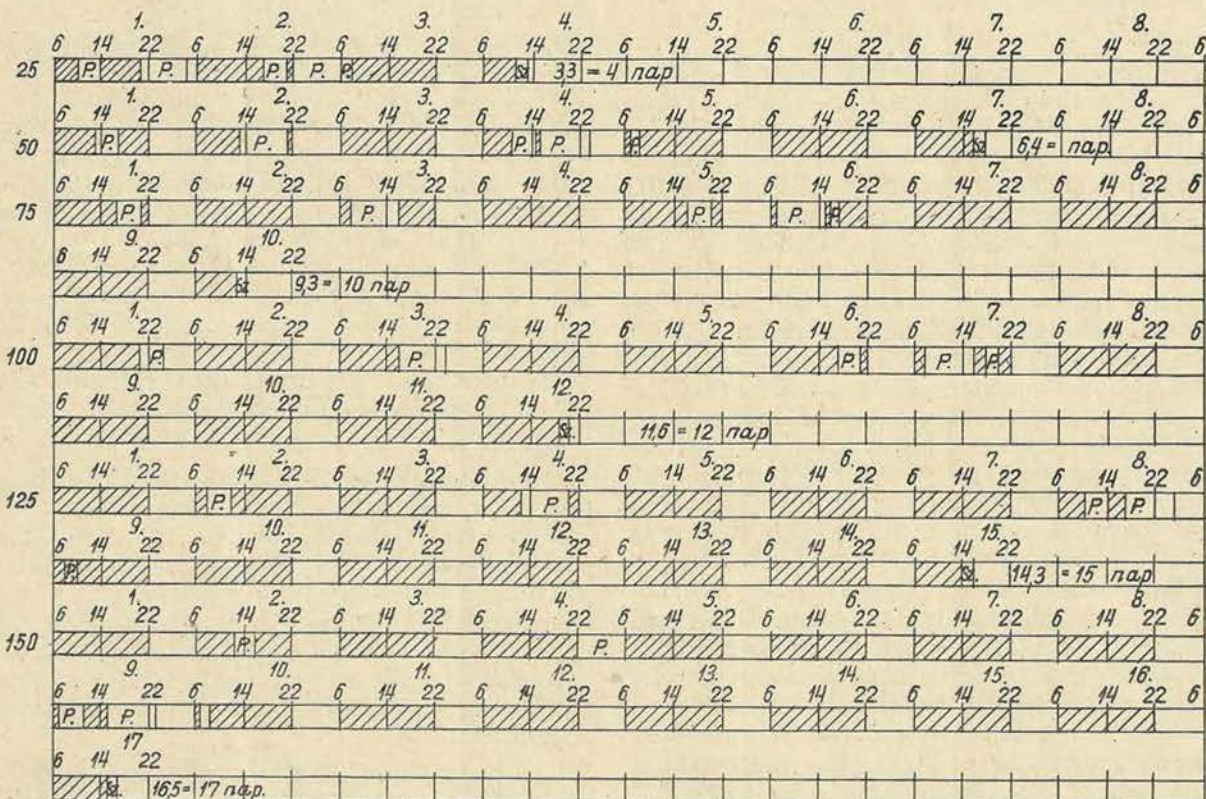 1. 2. 3. 4. 5. 6. 7. 8.
6 14 22 6 14 22 6 14 22 6 14 22 6 14 22 6 14 22 6 14 22 6 14 22 6
25 P. P. P. P. P. Sz 3,3 = 4 nap
1. 2. 3. 4. 5. 6. 7. 8.
6 14 22 6 14 22 6 14 22 6 14 22 6 14 22 6 14 22 6 14 22 6 14 22 6
50 P. P. P. P. P. Sz 6,4 = nap.
1. 2. 3. 4. 5. 6. 7. 8.
6 14 22 6 14 22 6 14 22 6 14 22 6 14 22 6 14 22 6 14 22 6 14 22 6
75 P. P. P. P. P.
9. 10.
6 14 22 6 14 22
Sz 9,3 = 10 nap
1. 2. 3. 4. 5. 6. 7. 8.
6 14 22 6 14 22 6 14 22 6 14 22 6 14 22 6 14 22 6 14 22 6 14 22 6
100 P. P. P. P. P.
9. 10. 11. 12.
6 14 22 6 14 22 6 14 22 6 14 22
Sz. 11,6 = 12 nap
1. 2. 3. 4. 5. 6. 7. 8.
6 14 22 6 14 22 6 14 22 6 14 22 6 14 22 6 14 22 6 14 22 6 14 22 6
125 P. P. P. P.
9. 10. 11. 12. 13. 14. 15.
6 14 22 6 14 22 6 14 22 6 14 22 6 14 22 6 14 22 6 14 22
P. Sz. 14,3 = 15 nap
1. 2. 3. 4. 5. 6. 7. 8.
6 14 22 6 14 22 6 14 22 6 14 22 6 14 22 6 14 22 6 14 22 6 14 22 6
150 P. P.
9. 10. 11. 12. 13. 14. 15. 16.
6 14 22 6 14 22 6 14 22 6 14 22 6 14 22 6 14 22 6 14 22 6 14 22 6
P. P.
17
6 14 22
Sz. 16,5 = 17 nap.